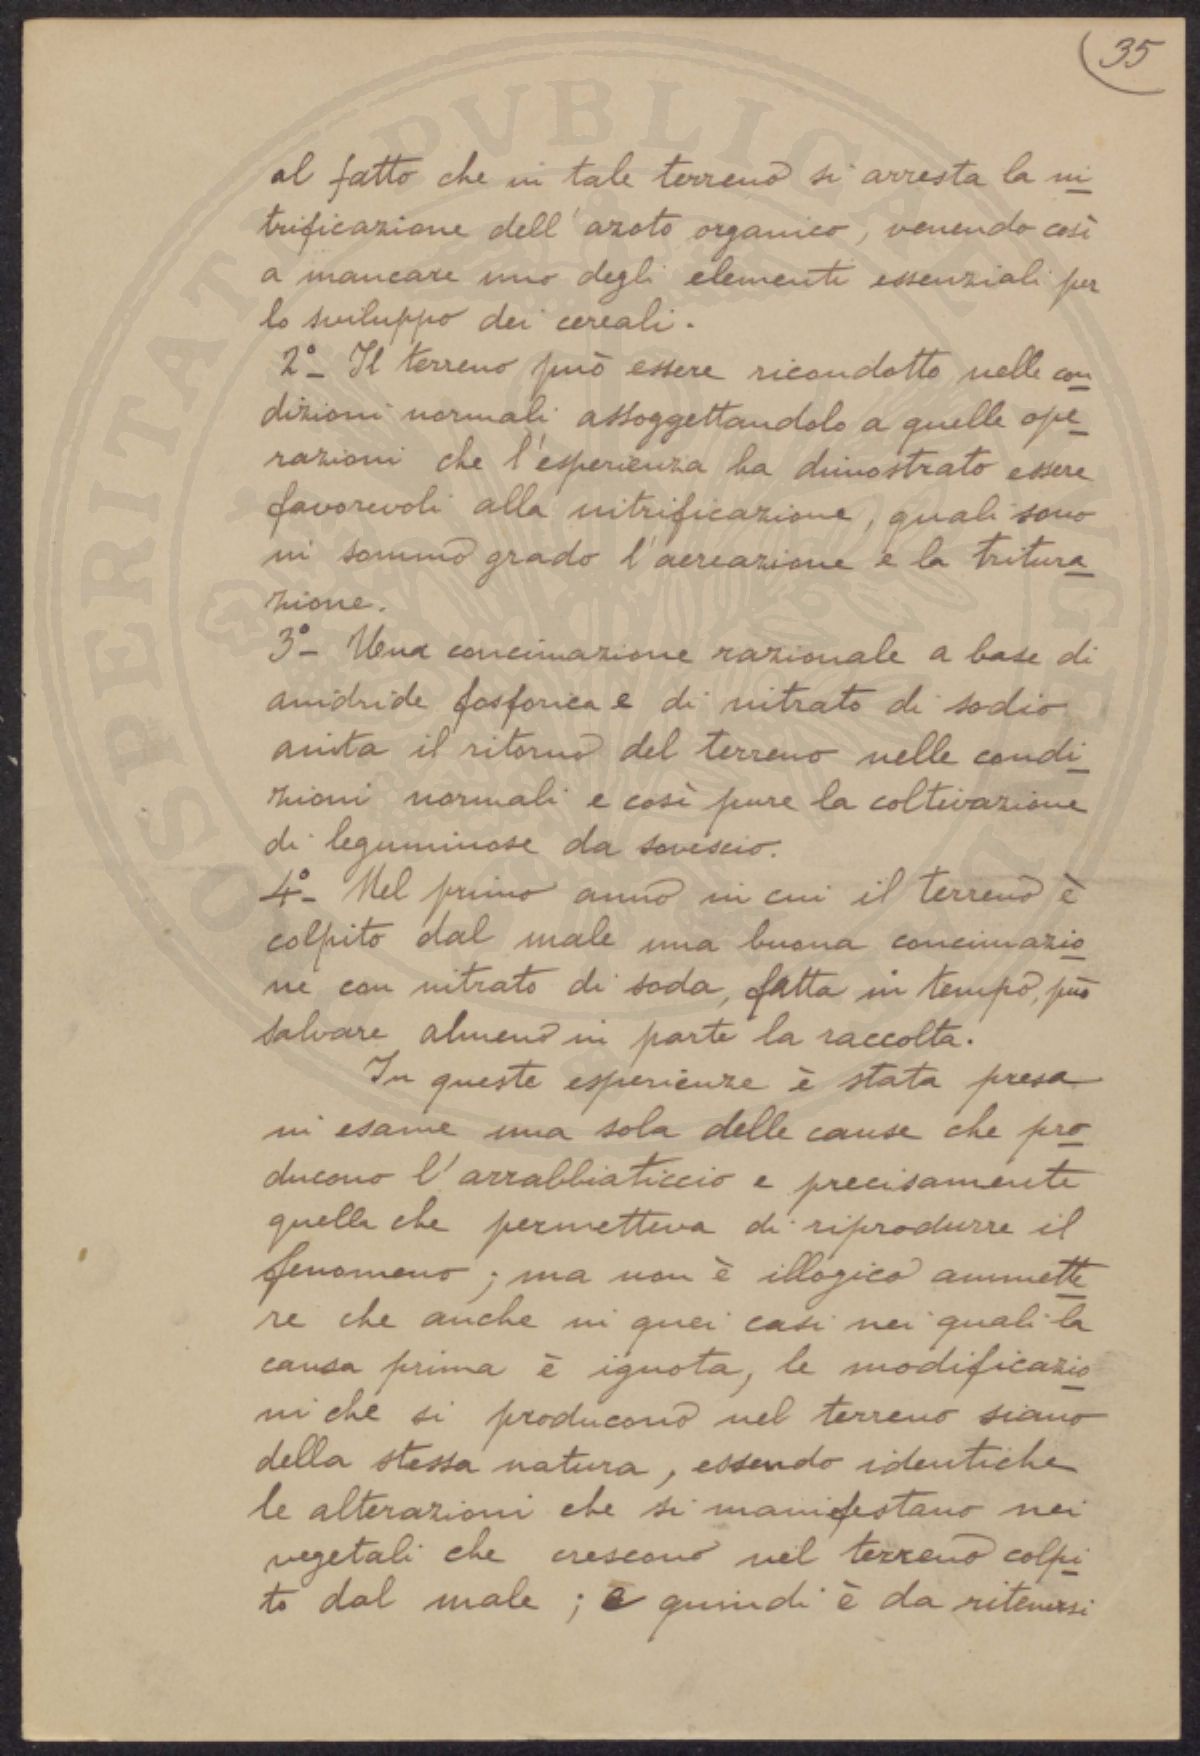 35
al fatto che in tale terreno si arresta la ni
trificazione dell'azoto organico, venendo così
a mancare uno degli elementi essenziali per
lo sviluppo dei cereali.
2°- Il terreno può essere ricondotto nelle con
dizioni normali assoggettandolo a quelle ope
razioni che l'esperienza ha dimostrato essere
favorevoli alla nitrificazione, quali sono
in sommo grado l'aereazione e la tritura
zione.
3°- Una concimazione razionale a base di
anidride fosforica e di nitrato di sodio
aiuta il ritorno del terreno nelle condi
zioni normali e così pure la coltivazione
di leguminose da sovescio.
4°- Nel primo anno in cui il terreno è
colpito dal male una buona concimazio
ne con nitrato di soda, fatta in tempo, può
salvare almeno in parte la raccolta.
In queste esperienze è stata presa
in esame una sola delle cause che pro
ducono l'arrabbiaticcio e precisamente
quella che permetteva di riprodurre il
fenomeno; ma non è illogico ammette
re che anche in quei casi nei quali la
causa prima è ignota, le modificazio
ni che si producono nel terreno siano
della stessa natura, essendo identiche
le alterazioni che si manifestano nei
vegetali che crescono nel terreno colpi
to dal male; e quindi è da ritenersi